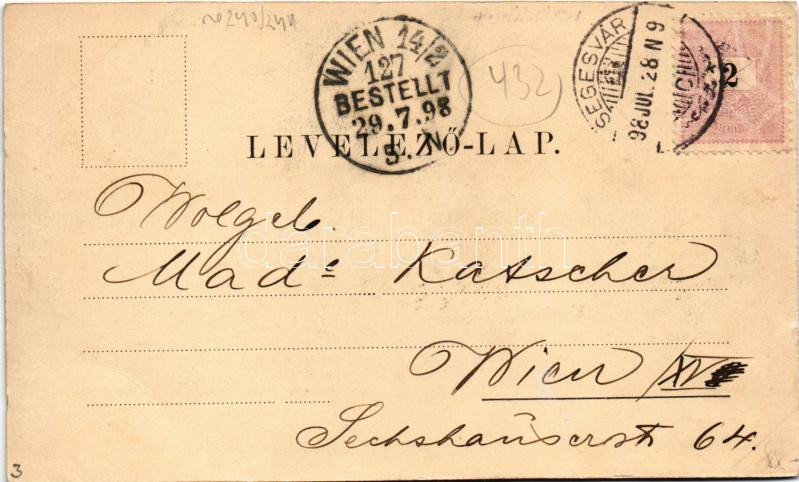 WIEN 14/2
127
BESTELLT
29.7.98
5.N
432
SEGESVÁR
98 JUL. 28 N 9
2
LEVELEZŐ-LAP.
Wolgeb.
darabanth
Madᵉ Katscher
Wien /XV
Sechshauserstr 64.
3